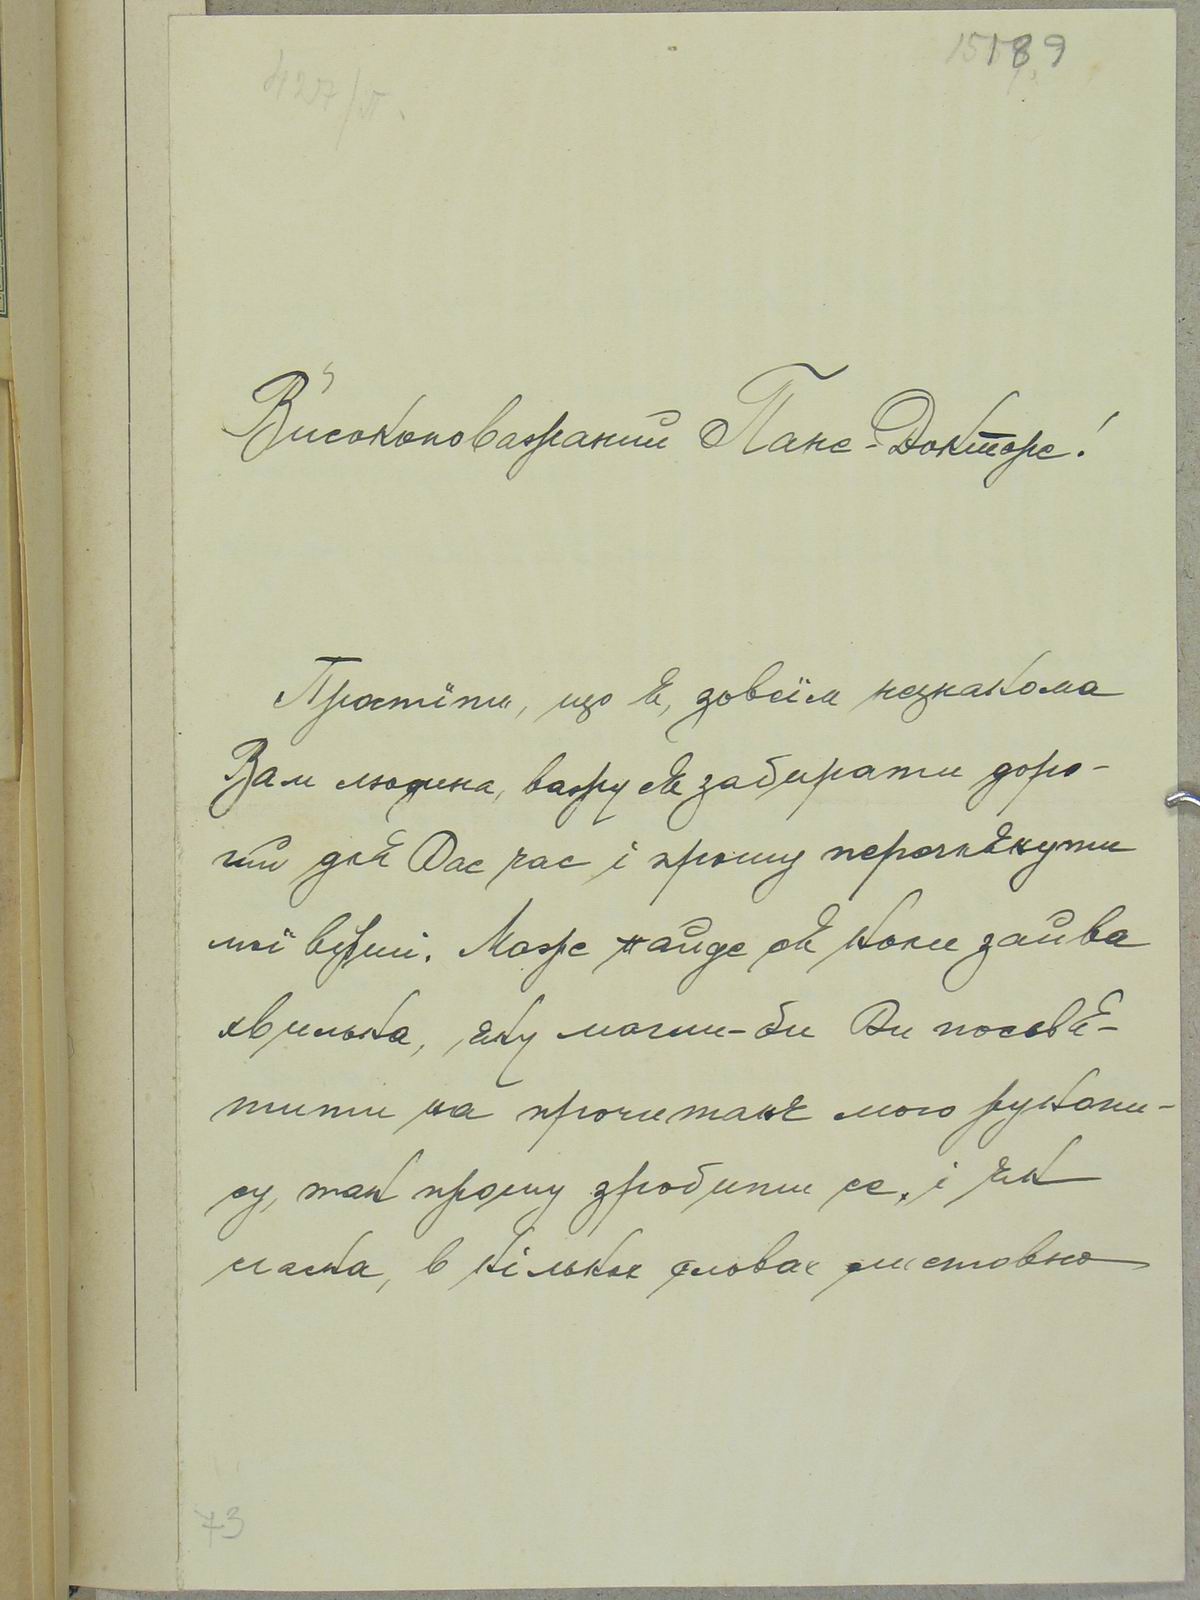 427/п.
189
Високоповажаний Пане-Докторе!
Простїть, що я, зовсїм незнакома
Вам людина, важу ся забирати доро-
гий для Вас час і прошу переглянути
мої вірші. Може найде ся коли зайва
хвилька, яку могли-би Ви посьвя-
тити на прочитанє мого рукопи-
су, так прошу зробити се, і як
ласка, в кількох словах листовно
73